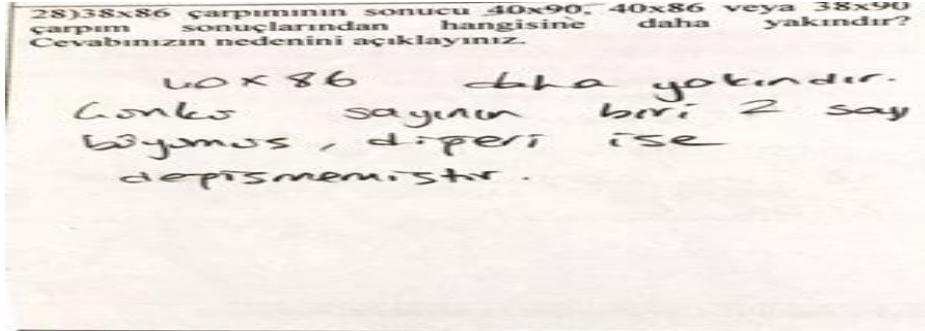 28)38x86 çarpımının sonucu 40x90, 40x86 veya 38x90
çarpım sonuçlarından hangisine daha yakındır?
Cevabınızın nedenini açıklayınız.
40x86 daha yakındır.
Çünkü sayının biri 2 say
büyümüş, diğeri ise
değişmemiştir.